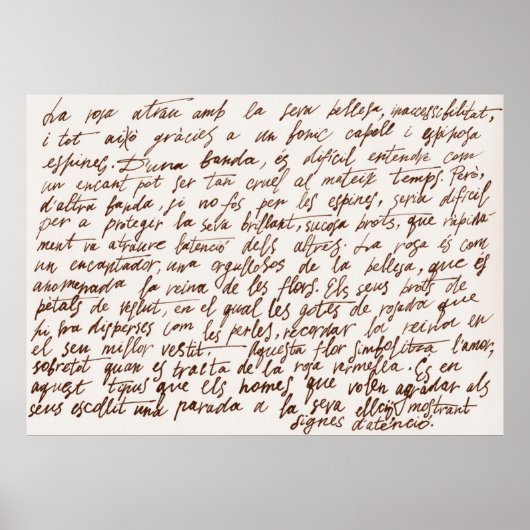 La rosa atrau amb la seva bellesa, inaccessibilitat,
i tot això gràcies a un fonic capell i espinosa
espines. D'una banda, és difícil entendre com
un encant pot ser tan cruel al mateix temps. Però,
d'altra banda, si no fos per les espines, seria difícil
per a protegir la seva brillant, sucosa brots, que ràpida-
ment va atraure l'atenció dels altres. La rosa és com
un encantador, una orgullosos de la bellesa, que és
anomenada la reina de les flors. Els seus brots de
pètals de vellut, en el qual les gotes de rosada que
hi ha disperses com les perles, recordar la reina en
el seu millor vestit. Aquesta flor simbolitza l'amor,
sobretot quan es tracta de la roja vermella. És en
aquest tipus que els homes que volen agradar als
seus escollit una parada a la seva elecció, mostrant
signes d'atenció.